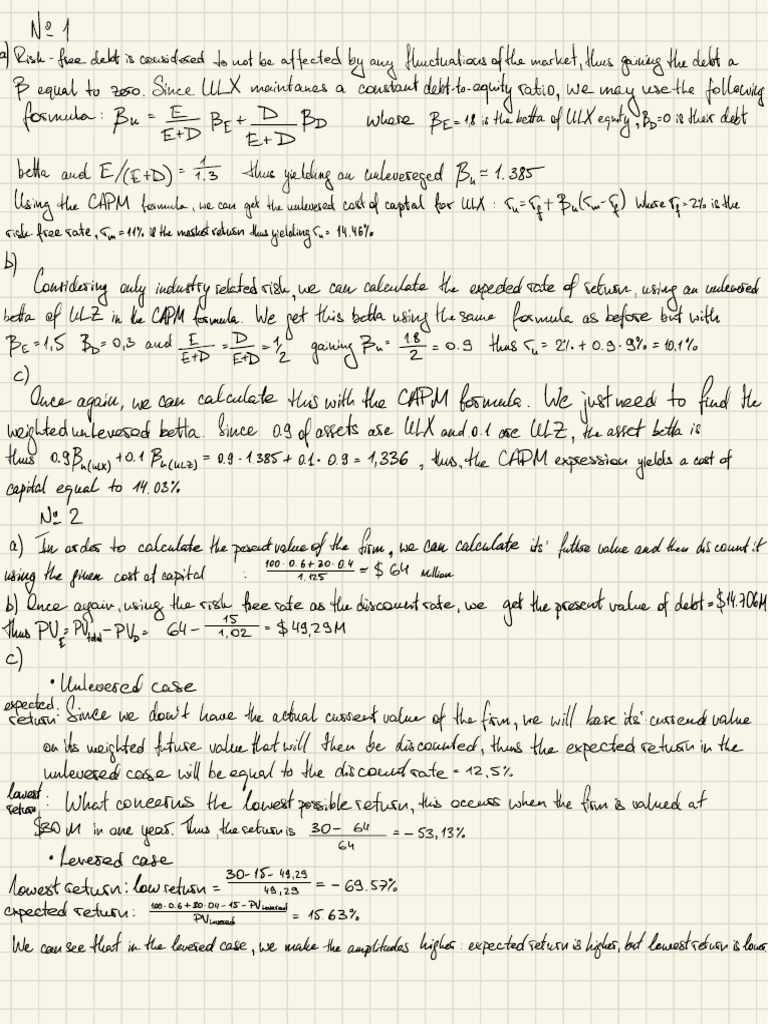 № 1
a) Risk-free debt is considered to not be affected by any fluctuations of the market, thus gaining the debt a
β equal to zero. Since ULX maintanes a constant debt-to-equity ratio, we may use the following
formula: βu = E/(E+D) βE + D/(E+D) βD where βE=1.8 is the betta of ULX equity, βD=0 is their debt
betta and E/(E+D) = 1/1.3 thus yielding an unlevereged βu ≃ 1.385
Using the CAPM formula, we can get the unlevered cost of captal for ULX: ru = rf + βu(rm-rf) where rf=2% is the
risk-free rate, rm=11% is the market return thus yielding ru = 14.46%
b)
Considering only industry related risk, we can calculate the expected rate of return, using an unlevered
betta of ULZ in the CAPM formula. We get this betta using the same formula as before but with
βE=1,5 βD=0,3 and E/(E+D) = D/(E+D) = 1/2 gaining βu = 1.8/2 = 0.9 thus ru = 2% + 0.9·9% = 10,1%
c)
Once again, we can calculate this with the CAPM formula. We just need to find the
weighted unlevered betta. Since 0.9 of assets are ULX and 0.1 are ULZ, the asset betta is
thus 0.9βu(ULX) + 0.1 βu(ULZ) = 0.9·1.385 + 0.1·0.9 = 1,336, thus, the CAPM expression yields a cost of
capital equal to 14.03%
№ 2
a) In order to calculate the present value of the firm, we can calculate its' future value and then discount it
using the given cost of capital : (100·0.6+30·0.4)/1.125 = $64 million
b) Once again, using the risk free rate as the discount rate, we get the present value of debt = $14.706M
thus PVE = PVtotal - PVD = 64 - 15/1,02 = $49,29M
c)
• Unlevered case
expected return: Since we don't have the actual current value of the firm, we will base its' currend value
on its weighted future value that will then be discounted, thus the expected return in the
unlevered case will be equal to the discount rate = 12,5%
lowest return: What concerns the lowest possible return, this occurs when the firm is valued at
$30 M in one year. Thus, the return is (30-64)/64 = -53,13%
• Levered case
lowest return: low return = (30-15-49,29)/49,29 = -69.57%
expected return: (100·0.6+30·0.4-15-PVlevered)/PVlevered = 15.63%
We can see that in the levered case, we make the amplitudes higher: expected return is higher, but lowest return is lower